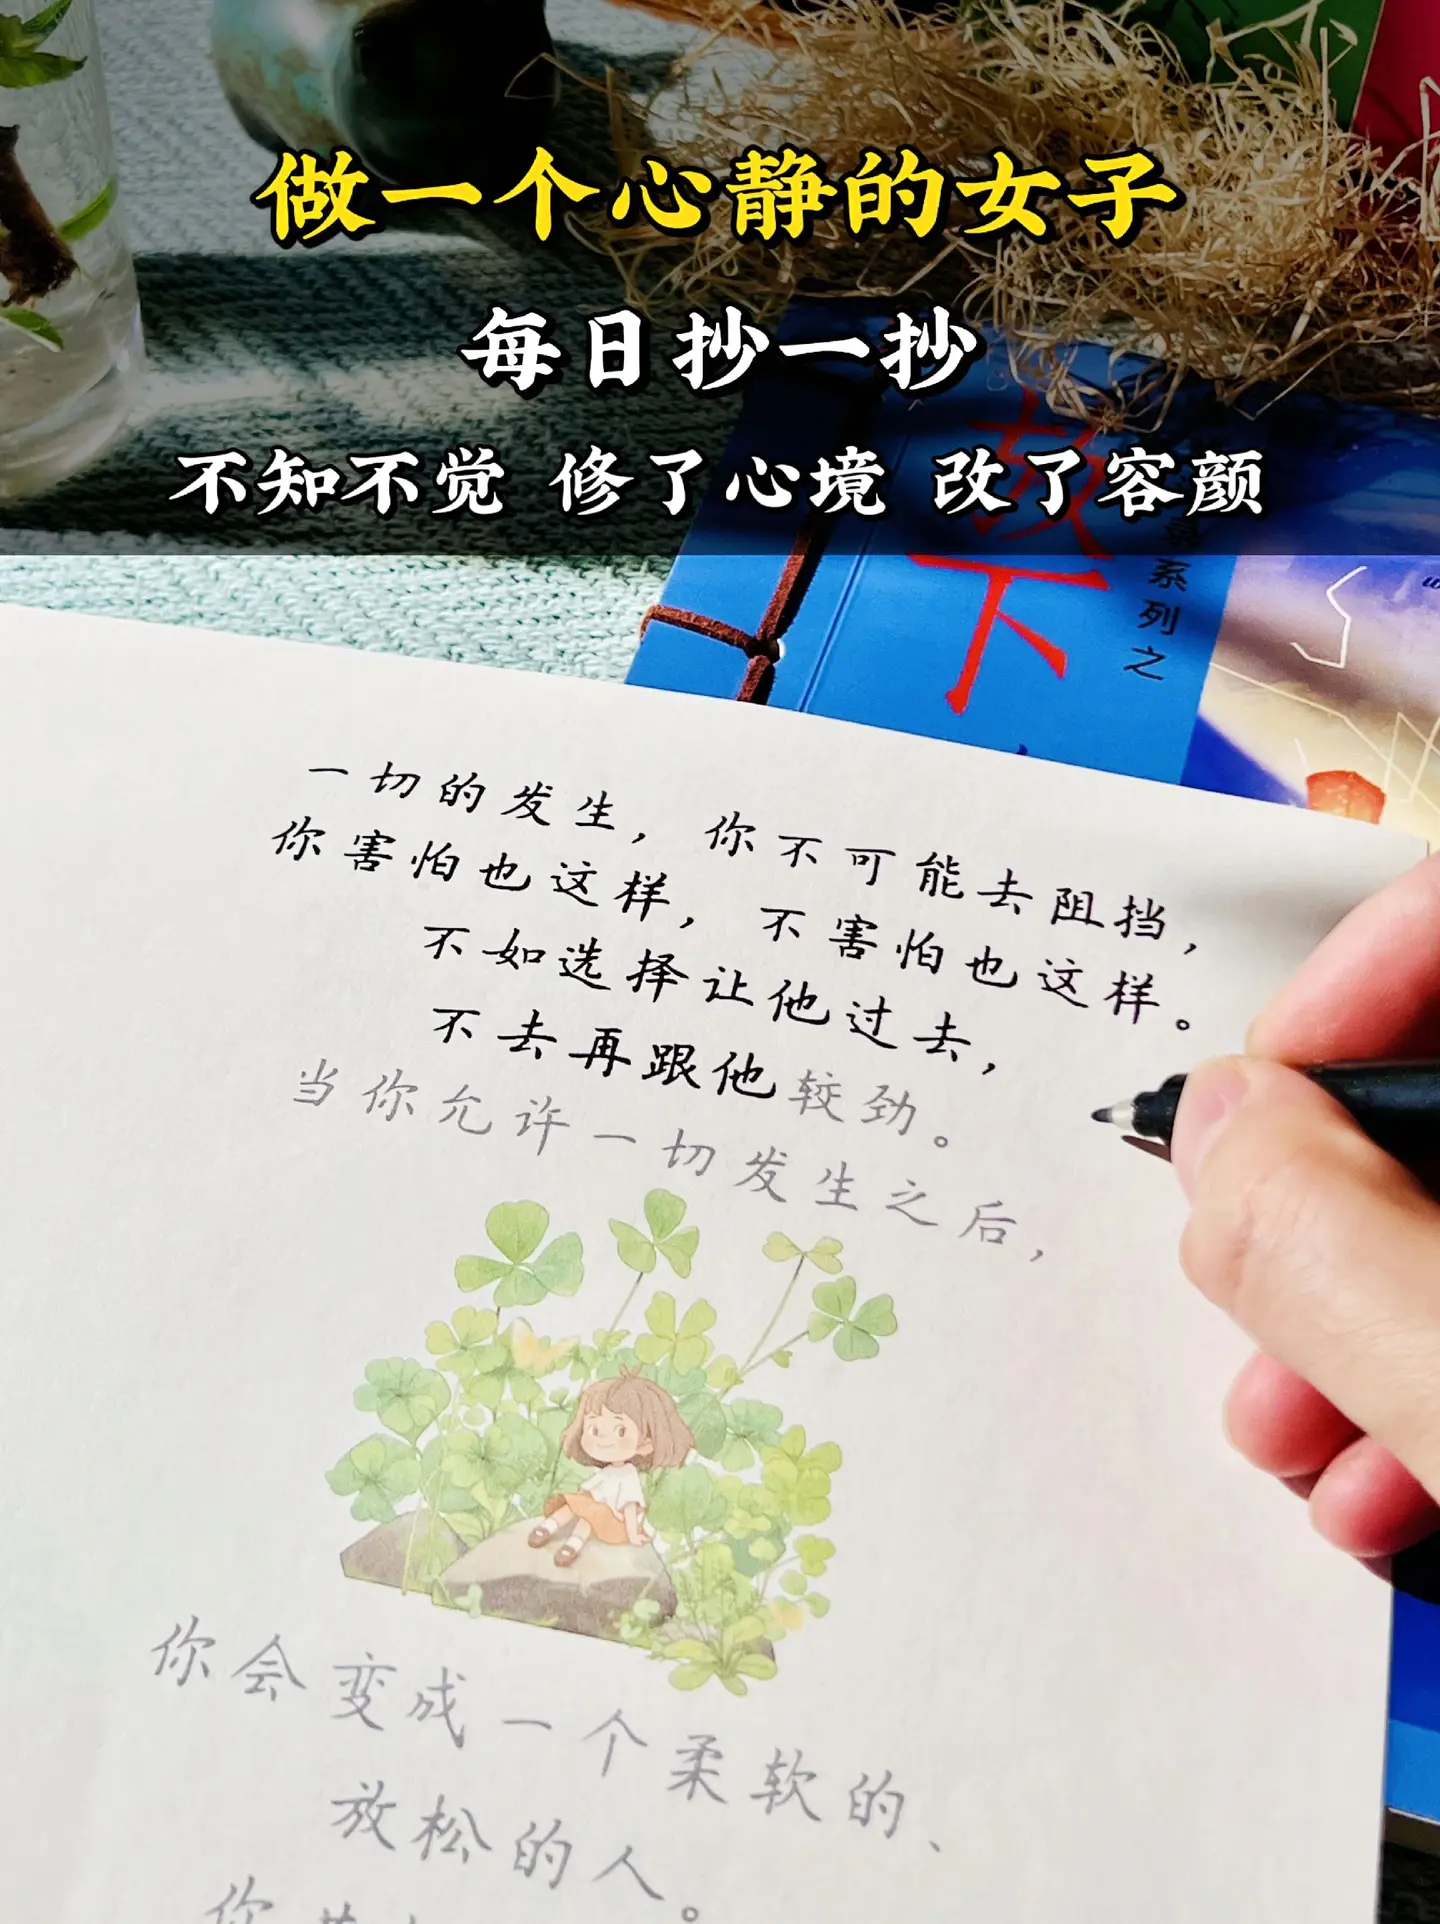 做一个心静的女子
每日抄一抄
不知不觉 修了心境 改了容颜
放下
系列之
一切的发生，你不可能去阻挡，
你害怕也这样，不害怕也这样。
不如选择让他过去，
不去再跟他较劲。
当你允许一切发生之后，
你会变成一个柔软的、
放松的人。
你